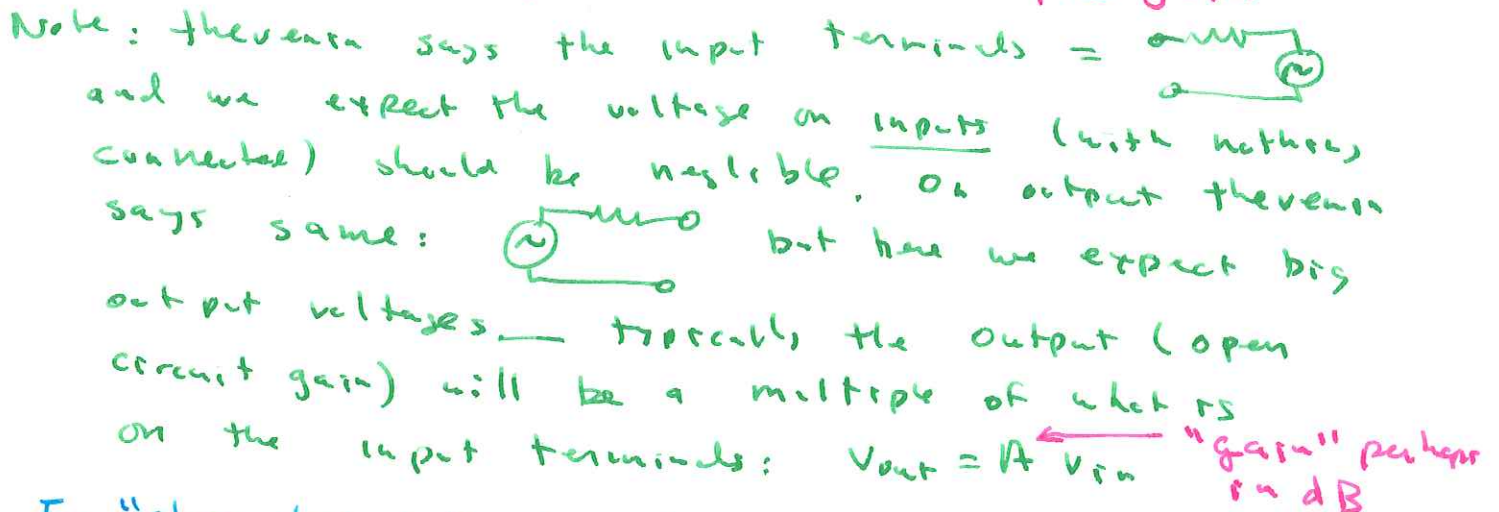 Note: thevenin says the input terminals =
and we expect the voltage on inputs (with nothing
connected) should be neglible. On output thevenin
says same: but here we expect big
output voltages — typically the output (open
circuit gain) will be a multiple of what is
on the input terminals: Vout = A Vin "gain" perhaps
in dB